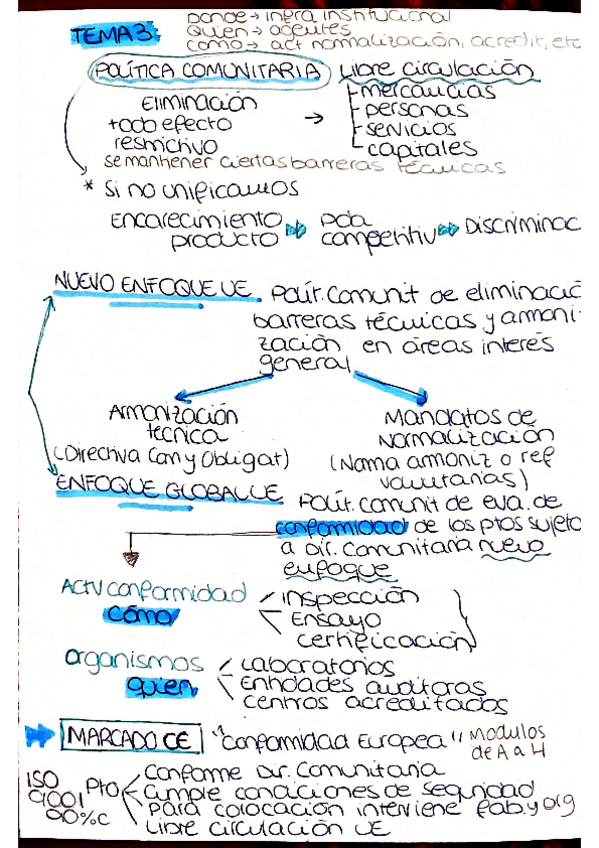 TEMA 3:
Donde → infra institucional
Quien → agentes
como → act normalización, acredit, etc
POLÍTICA COMUNITARIA
Libre circulación
Eliminación
todo efecto
restrictivo
→
- mercancias
- personas
- servicios
- capitales
se mantener ciertas barreras técnicas
* Si no unificamos
Encarecimiento
producto
Pda
competitiv
Discriminac
NUEVO ENFOQUE UE.
Polít. Comunit de eliminació
barreras técnicas y armoni-
zación en áreas interés
general
Armonización
tecnica
(Directiva Com y Obligat)
Mandatos de
Normalización
(Norma armoniz o ref
voluntarias)
ENFOQUE GLOBAL UE
Polít. comunit de eva. de
conformidad de los ptos sujeto
a Dir. Comunitaria nuevo
enfoque
Actv conformidad
cómo
inspección
Ensayo
certificación
organismos
quien
Laboratorios
Entidades auditoras
centros acreditados
MARCADO CE
"Conformidad Europea"
Modulos
de A a H
ISO
9001
90%C
Pto
Conforme Dir. Comunitaria
Cumple condiciones de seguridad
Para colocación interviene fab. y org
Libre circulación UE